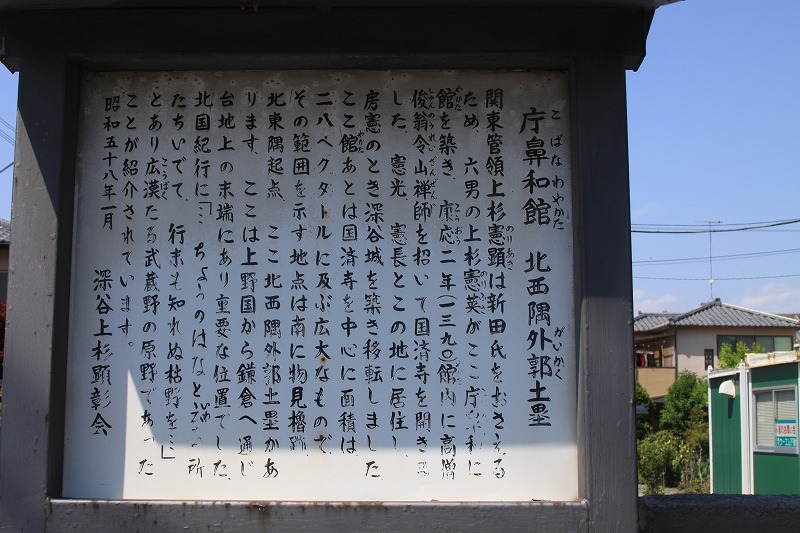 庁鼻和館 北西隅外郭土塁
こばなわやかた がいかく
関東管領上杉憲顕は新田氏をおさえる
のりあき
ため、六男の上杉憲英がここ庁鼻和に
のりふさ
館を築き 康応二年(一三九〇)館内に高僧
やかた こうおう
峻翁令山禅師を招いて国済寺を開きま
しゅんのうれいざんぜんじ
した。憲光 憲長とこの地に居住し、
房憲のとき深谷城を築き移転しました
ここ館あとは国済寺を中心に面積は
やかた
二八ヘクタールに及ぶ広大なもので、
その範囲を示す地点は南に物見櫓跡
北東隅起点、ここ北西隅外郭土塁があ
ります。ここは上野国から鎌倉へ通じ
台地上の末端にあり重要な位置でした、
北国紀行に「… ちょうのはなといふ所
たちいでて、行末も知れぬ枯野を…」
とあり広漠たる武蔵野の原野であった
こうばく
ことが紹介されています。
昭和五十八年一月 深谷上杉顕彰会